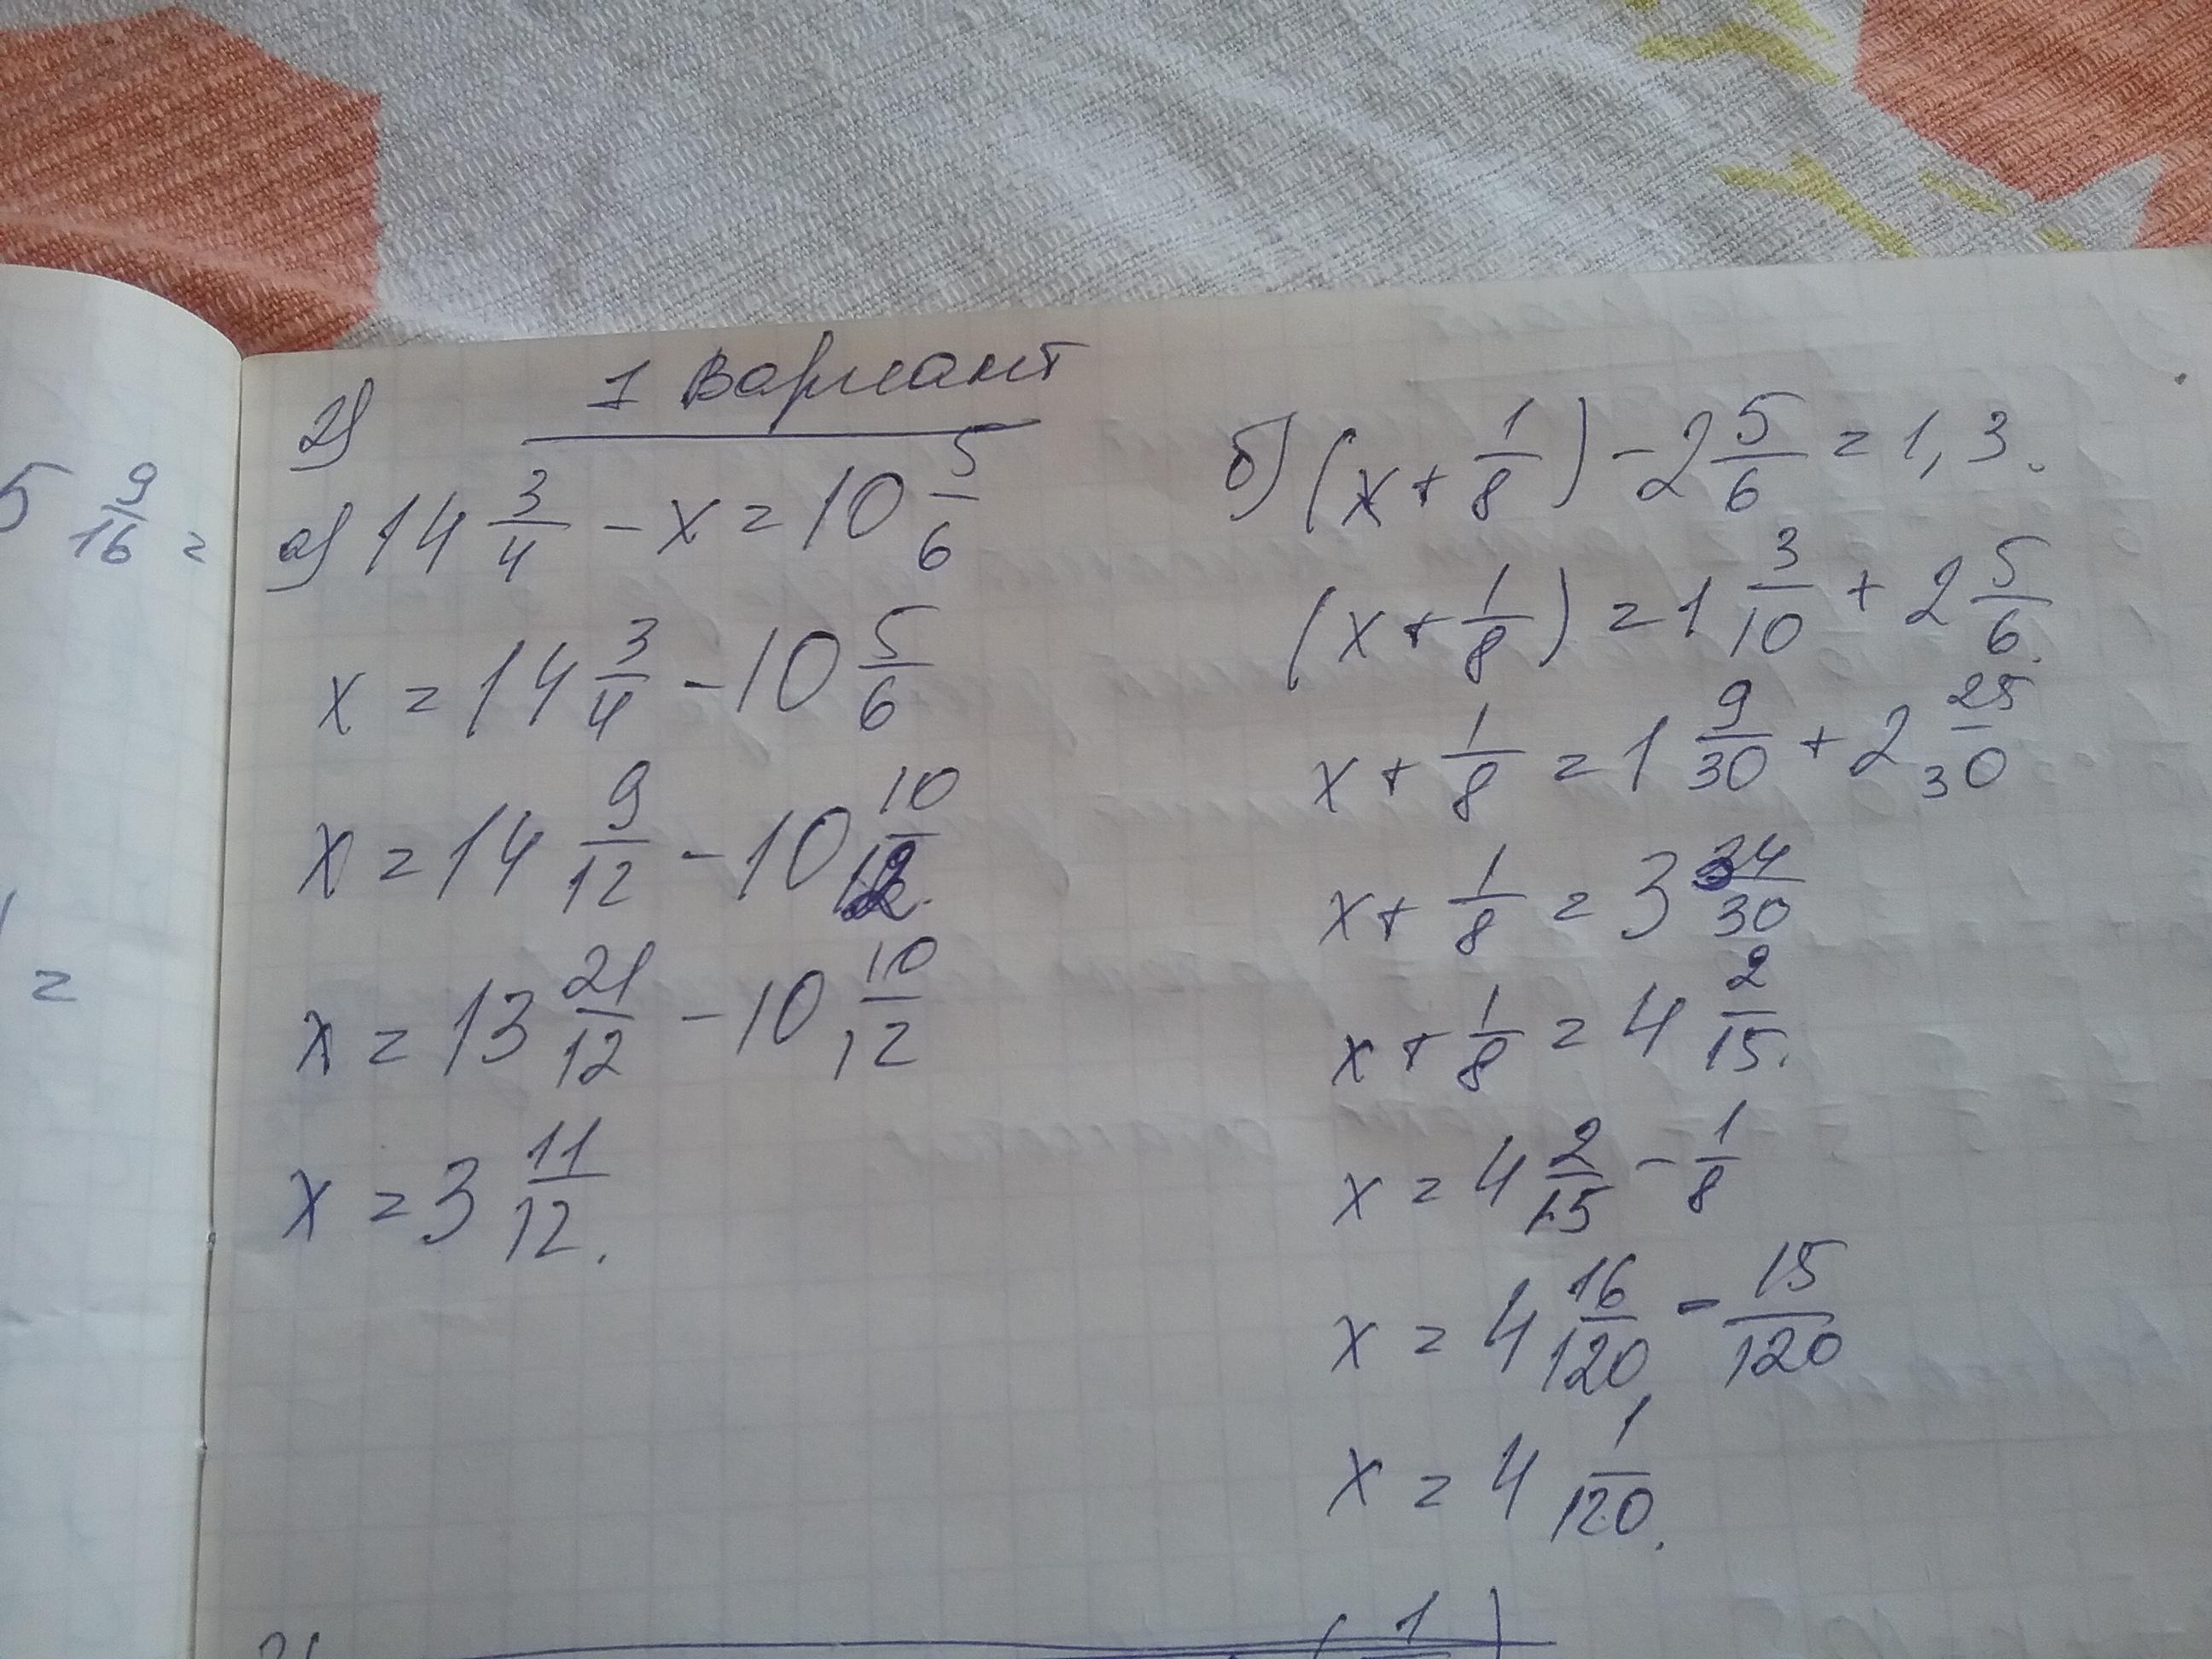 1 Вариант
2)
а) 14 3/4 - x = 10 5/6
x = 14 3/4 - 10 5/6
x = 14 9/12 - 10 10/12.
x = 13 21/12 - 10 10/12
x = 3 11/12.
б) (x + 1/8) - 2 5/6 = 1,3.
(x + 1/8) = 1 3/10 + 2 5/6.
x + 1/8 = 1 9/30 + 2 25/30
x + 1/8 = 3 34/30
x + 1/8 = 4 2/15.
x = 4 2/15 - 1/8
x = 4 16/120 - 15/120
x = 4 1/120.
5 9/16 =
=